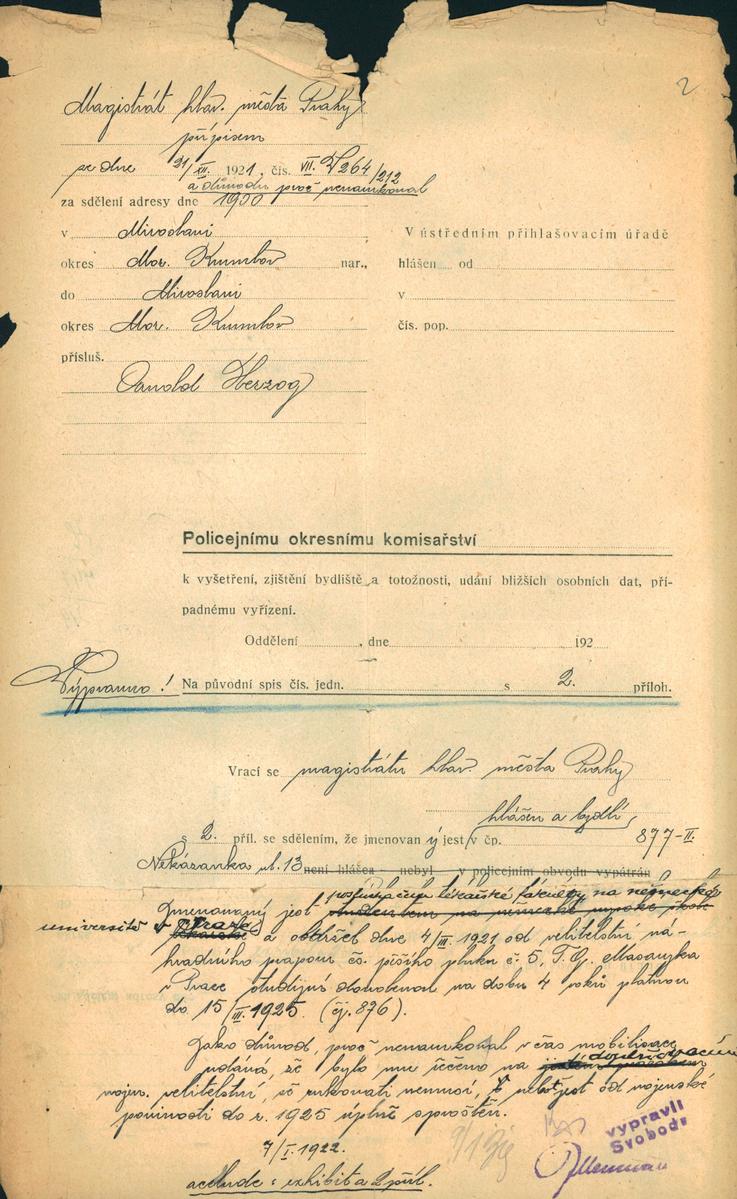 2
Magistrát hlav. města Prahy
přípisem
ze dne 21/XII. 1921, čís. VII. 264/212
a důvodu proč nenarukoval
za sdělení adresy dne 1900
v Miroslavi
okres Mor. Krumlov nar.,
do Miroslavi
okres Mor. Krumlov
přísluš.
Arnold Herzog
V ústředním přihlašovacím úřadě
hlášen od
v
čís. pop.
Policejnímu okresnímu komisařství
k vyšetření, zjištění bydliště a totožnosti, udání bližších osobních dat, pří-
padnému vyřízení.
Oddělení , dne 192
Výpravna! Na původní spis čís. jedn. s 2. příloh.
Vrací se magistrátu hlav. města Prahy
hlášen a bydlí
s 2. příl. se sdělením, že jmenovan ý jest v čp. 877-II.
Nekázanka ul. 13 není hlášen – nebyl – v policejním obvodu vypátrán
posluchačem lékařské fakulty na německé
Jmenovaný jest studentem na německé vysoké škole
universitě v Praze a obdržel dne 4/III. 1921 od velitelství ná-
hradního praporu čs. pěšího pluku č. 5, T. G. Masaryka
v Praze studijní dovolenou na dobu 4 roků platnou
do 15/III. 1925. (čj. 876).
Jako důvod, proč nenarukoval v čas mobilisace
udává, že bylo mu řečeno na doplňovacím
vojen. velitelství, že rukovati nemusí, neboť jest od vojenské
povinnosti do r. 1925 úplně sproštěn.
7/I. 1922.
acclude: exhibit a 2 příl.
vypravil
Svoboda